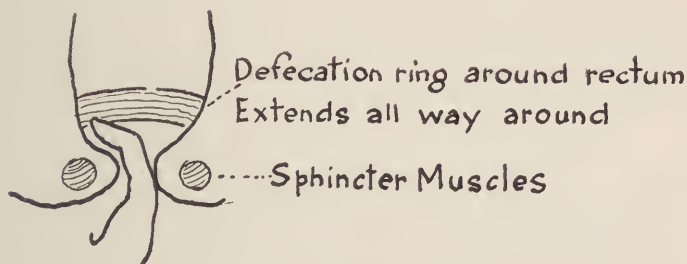 Defecation ring around rectum
Extends all way around
Sphincter Muscles